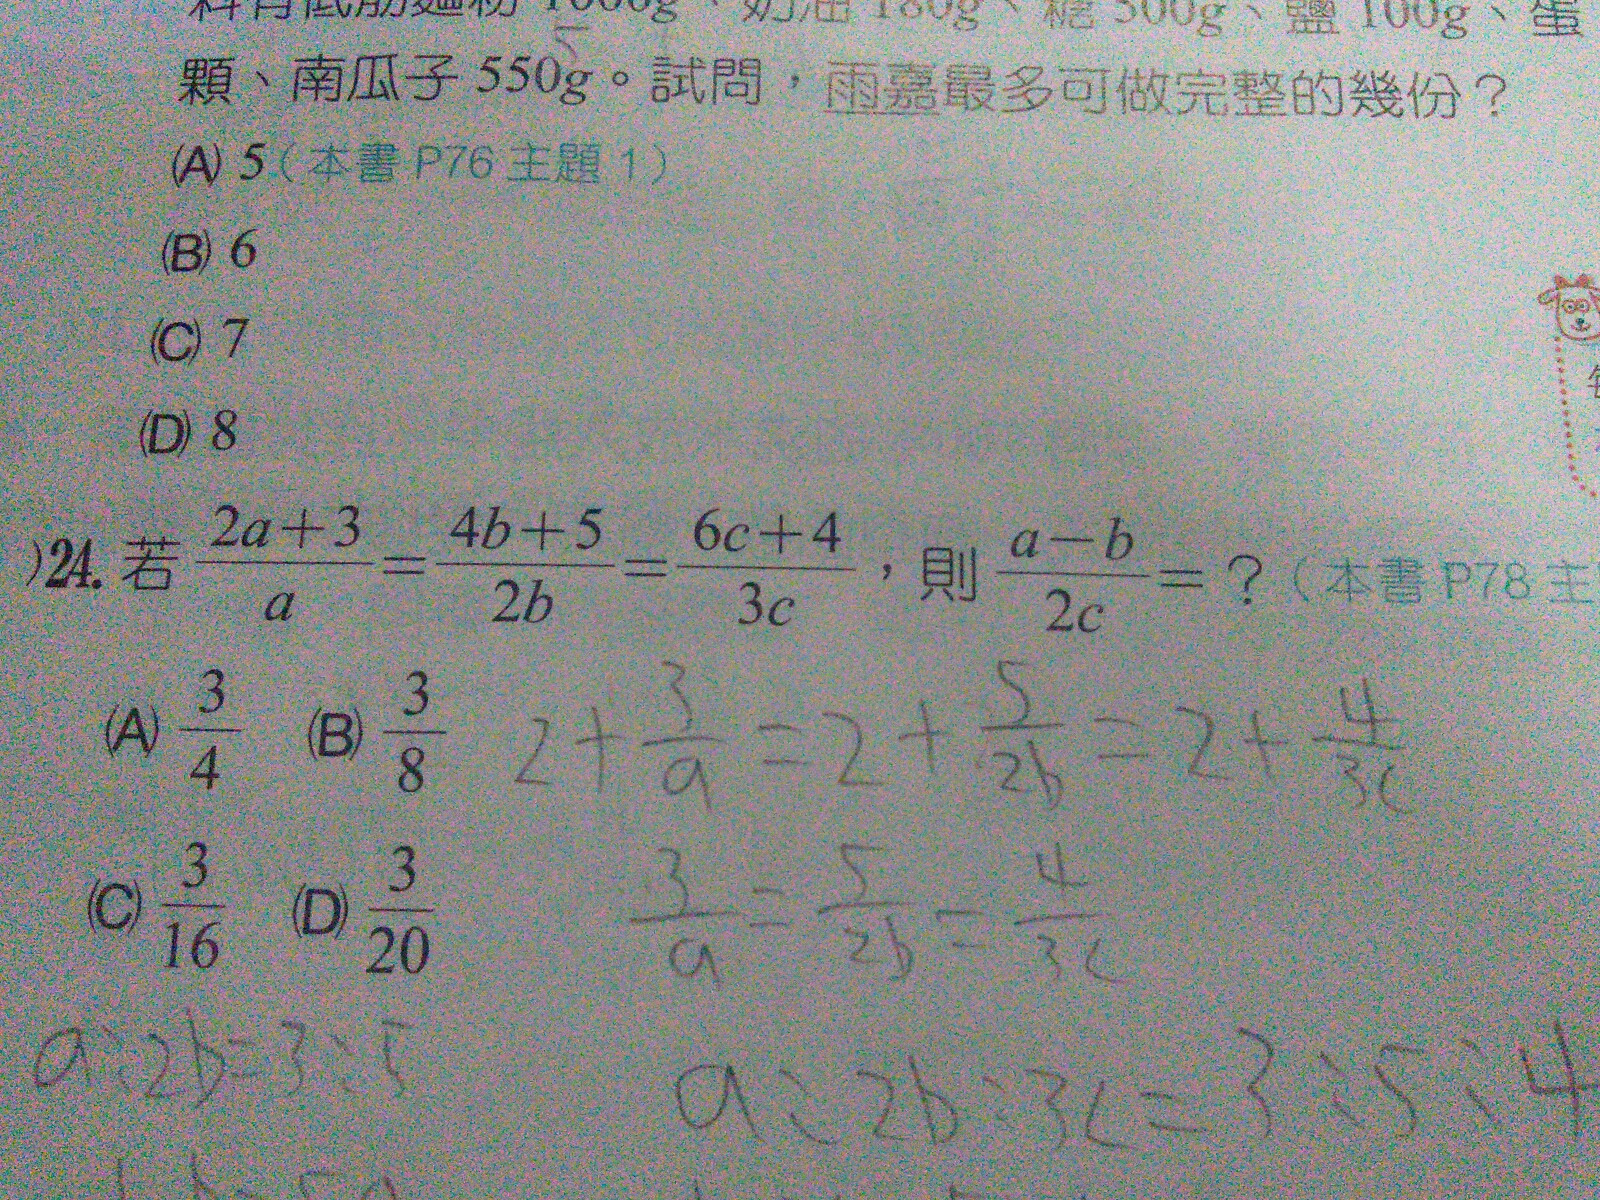 料有低筋麵粉 1000g、奶油 180g、糖 300g、鹽 100g、蛋
5
顆、南瓜子 550g。試問，雨嘉最多可做完整的幾份？
(A) 5（本書 P76 主題 1）
(B) 6
(C) 7
(D) 8
)24. 若 (2a+3)/a = (4b+5)/2b = (6c+4)/3c ，則 (a-b)/2c = ？（本書 P78 主
(A) 3/4 (B) 3/8
2+3/a = 2+5/2b = 2+4/3c
(C) 3/16 (D) 3/20
3/a = 5/2b = 4/3c
a:2b=3:5
a:2b:3c=3:5:4